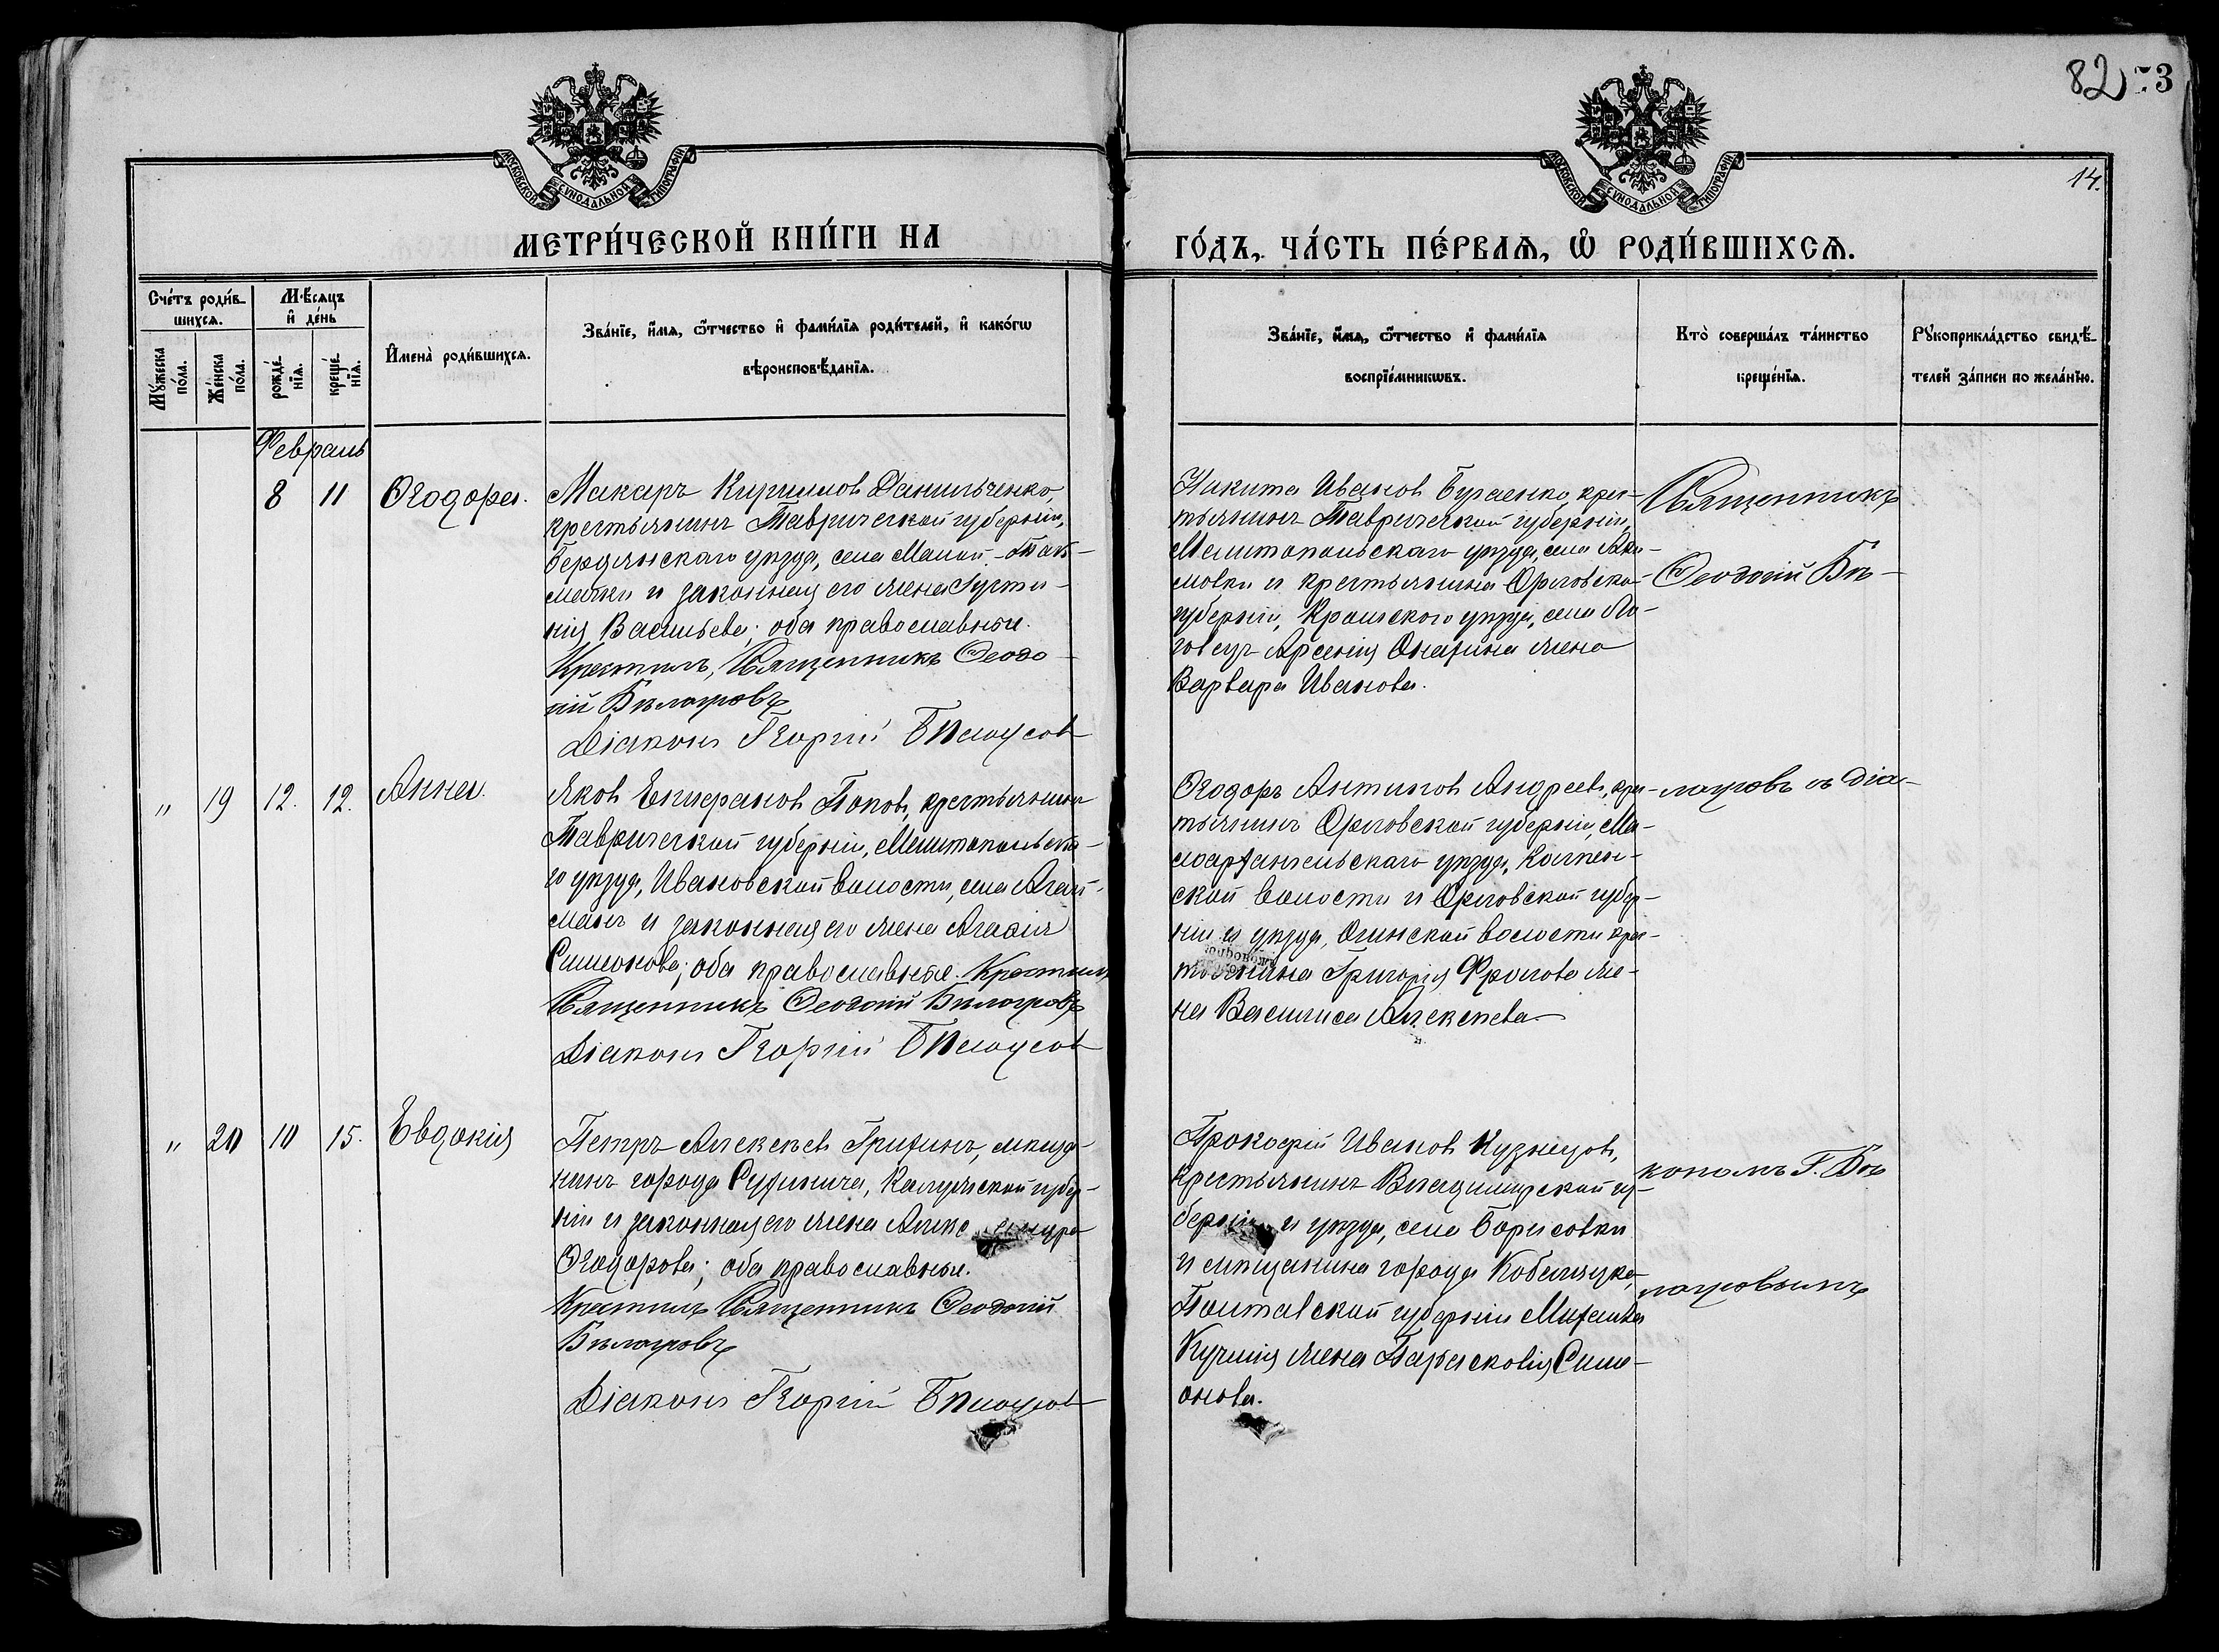 82
73
14.
МОСКОВСКОЙ СѴНОДАЛЬНОЙ ТИПОГРАФІИ
МОСКОВСКОЙ СѴНОДАЛЬНОЙ ТИПОГРАФІИ
МЕТРИ́ЧЕСКОЙ КНИ́ГИ НА
ГО́ДЪ, ЧА́СТЬ ПЕ́РВАѦ, Ѡ҆ РОДИ́ВШИХСѦ.
Сче́тъ роди́в-
шихсѧ.
Мꙋ́жеска
по́ла.
Же́нска
по́ла.
Мѣ́сѧцъ
и҆ де́нь
рожде́-
нїѧ.
креще́-
нїѧ.
И҆мена̀ роди́вшихсѧ.
Зва́нїе, и҆́мѧ, ѻ҆́тчество и҆ фами́лїѧ роди́телей, и҆ како́гѡ
вѣроисповѣ́данїѧ.
Зва́нїе, и҆́мѧ, ѻ҆́тчество и҆ фами́лїѧ
воспрїе́мникѡвъ.
Кто̀ соверша́лъ та́инство
креще́нїѧ.
Рꙋкоприкла́дство свидѣ́-
телей за́писи по жела́нїю.
Февраль
8 11 Ѳеодора.
Макаръ Кириллов Данильченко,
крестьянинъ Таврической губерніи,
Бердянскаго уѣзда, села Малой-Ток-
мачки и законная его жена Іусти-
нія Васильева; оба православные.
Крестилъ, Священникъ Ѳеодо-
ій Бѣлоусовъ
Діаконъ Георгій Бѣлоусов
Никита Иванов Бугаенко, крес-
тьянинъ Таврической губерніи,
Мелитопольскаго уѣзда, села Аки-
мовки и крестьянина Орловской
губерніи, Кромского уѣзда, села
Арсенія жена
Варвара Иванова.
Священникъ
Ѳеодосій Бѣ-
" 19 12. 12. Анна.
Яков Епифанов Попов, крестьянинъ
Таврической губерніи, Мелитопольска-
го уѣзда, Ивановской волости, села Агай-
манъ и законная его жена Агафія
Симеонова; оба православные. Крестилъ
Священникъ Ѳеодосій Бѣлоусовъ
Діаконъ Георгій Бѣлоусов
Ѳеодоръ Антипов Андреев, крес-
тьянинъ Орловской губерніи, Ма-
лоархангельскаго уѣзда,
ской волости и Орловской губер-
ніи и уѣзда, волости крес-
тьянина Григорія Фролова же-
на Василиса Алексѣева
лоусовъ съ діа-
" 20 10 15. Евдокія
Петръ Алексѣев Грихинъ, мѣща-
нинъ города Сухинича, Калужской губер-
ніи и законная его жена Александра
Ѳеодорова; оба православные.
Крестилъ Священникъ Ѳеодосій
Бѣлоусовъ
Діаконъ Георгій Бѣлоусов
Прокофій Иванов Кузнецов,
крестьянинъ Владимирской гу-
берніи и уѣзда, села Борисовки
и мѣщанина города Кобеляки,
Полтавской губерніи Михаила
жена Парасковія Симе-
онова.
кономъ Г. Бѣ
лоусовымъ